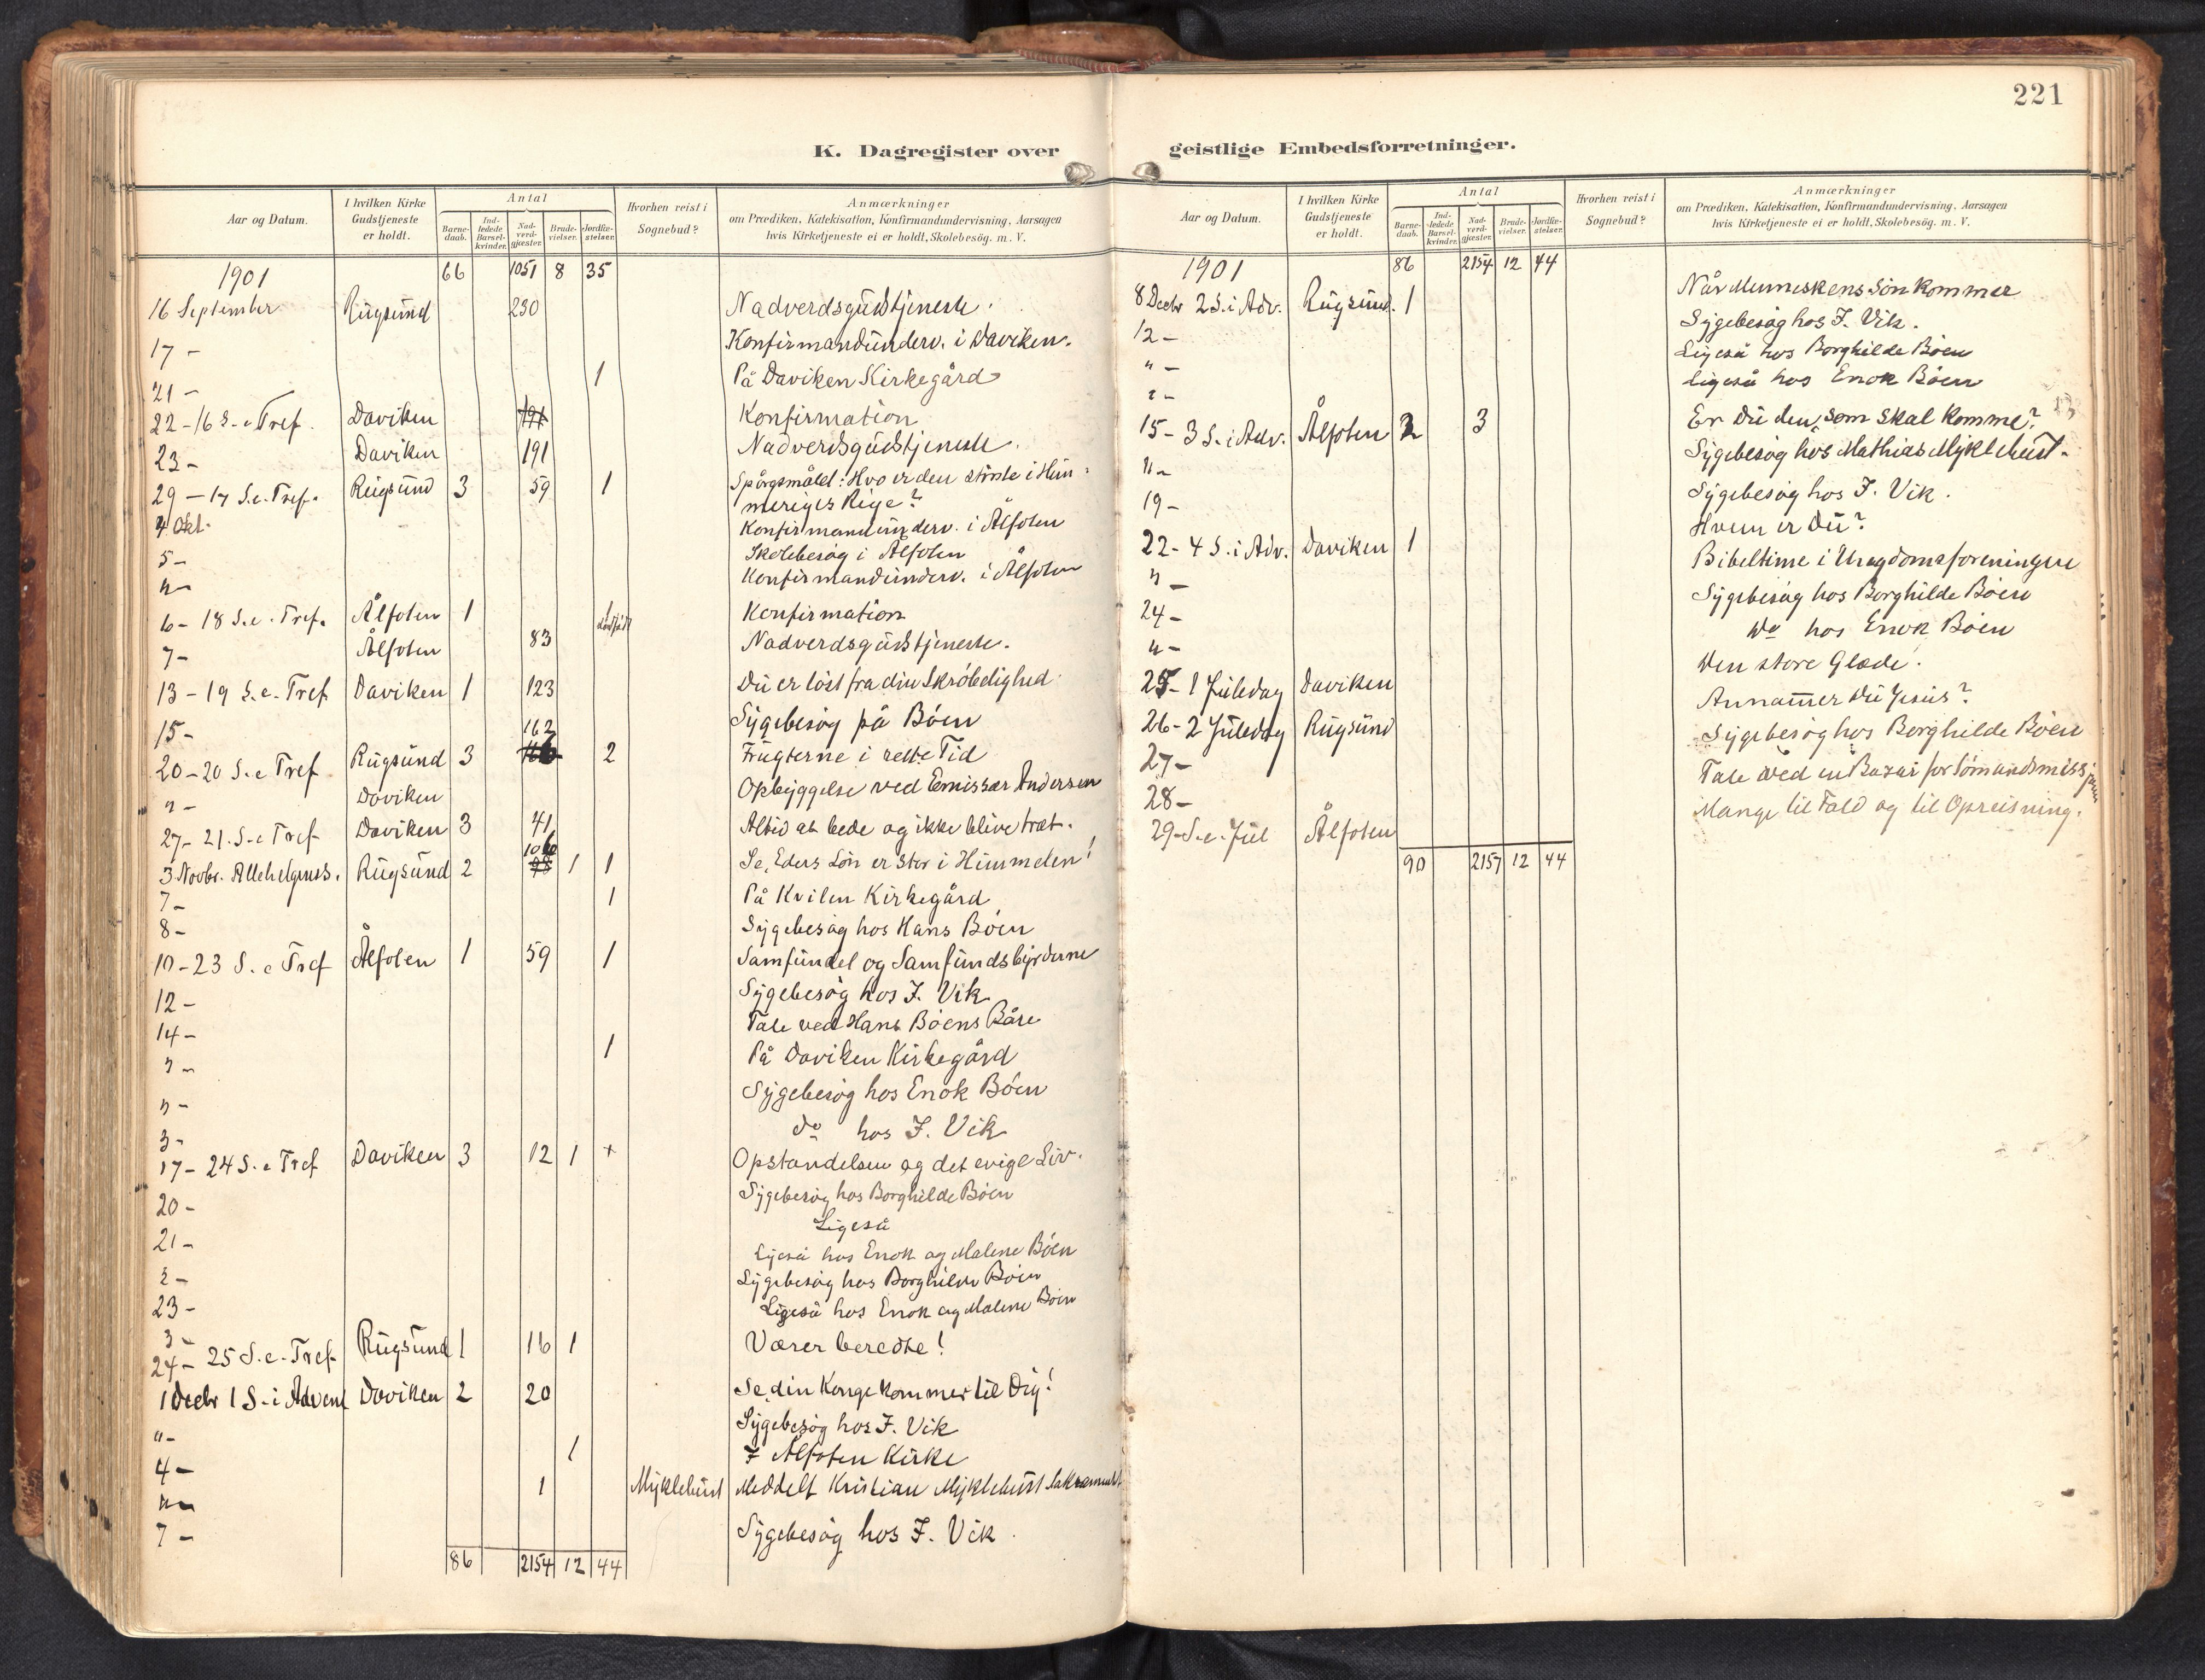 221
K. Dagregister over geistlige Embedsforretninger.
Aar og Datum. I hvilken Kirke Gudstjeneste er holdt. Antal Barne-daab. Ind-ledede Barsel-kvinder. Nad-verd-gjæster. Brude-vielser. Jordfæ-stelser. Hvorhen reist i Sognebud? Anmærkninger om Prædiken, Katekisation, Konfirmandundervisning, Aarsagen hvis Kirketjeneste ei er holdt, Skolebesøg. m. V.
1901 66 1051 8 35
16 September Rugsund 230 Nadverdsgudstjeneste.
17 - Konfirmandunderv. i Daviken.
21 - 1 På Daviken Kirkegård
22 - 16 S. e Tref. Daviken 191 Konfirmation
23 - Daviken 191 Nadverdsgudstjeneste.
29 - 17 S. e. Tref. Rugsund 3 59 1 Spårgsmålet: Hvo er den störste i Him-
meriges Rige?
4 Okt. Konfirmandunderv. i Ålfoten
5 - Skolebesøg i Ålfoten
" - Konfirmandunderv. i Ålfoten
6 - 18 S. e. Tref. Ålfoten 1 1 dødfødt Konfirmation
7 - Ålfoten 83 Nadverdsgudstjeneste.
13 - 19 S. e. Tref Daviken 1 123 Du er løst fra din Skrøbelighed.
15 - Sygebesøg på Bøen
20 - 20 S. e Tref Rugsund 3 162 2 Frugterne i rette Tid
" - Daviken Opbyggelse ved Emissær Andersen
27 - 21. S. e Tref Daviken 3 41 Altid at bede og ikke blive træt.
3 Novbr. Allehelgenss. Rugsund 2 98 106 1 1 Se, Eders Løn er stor i Himmelen!
7 - 1 På Kvilen Kirkegård
8 - Sygebesøg hos Hans Bøen
10 - 23 S. e Tref Ålfoten 1 59 1 Samfundet og Samfundsbyrderne
12 - Sygebesøg hos J. Vik
14 - Tale ved Hans Bøens Båre
" - 1 På Daviken Kirkegård
" - Sygebesøg hos Enok Bøen
" - do hos J. Vik
17 - 24 S. e Tref Daviken 3 12 1 + Opstandelsen og det evige Liv.
20 - Sygebesøg hos Borghilde Bøen
21 - Ligeså
" - Ligeså hos Enok og Malene Bøen
23 - Sygebesøg hos Borghilde Bøen
" - Ligeså hos Enok og Malene Bøen
24 - 25 S. e. Tref Rugsund 1 16 1 Værer beredte!
1 Decbr 1 S. i Advent Daviken 2 20 Se, din Konge kommer til Dig!
" - Sygebesøg hos J. Vik
4 - 1 I Ålfoten Kirke
" - 1 Myklebust Meddelt Kristian Myklebust Sakramentet
7 - Sygebesøg hos J. Vik.
86 2154 12 44
Aar og Datum. I hvilken Kirke Gudstjeneste er holdt. Antal Barne-daab. Ind-ledede Barsel-kvinder. Nad-verd-gjæster. Brude-vielser. Jordfæ-stelser. Hvorhen reist i Sognebud? Anmærkninger om Prædiken, Katekisation, Konfirmandundervisning, Aarsagen hvis Kirketjeneste ei er holdt, Skolebesøg. m. V.
1901 86 2154 12 44
8 Decbr 2 S. i Adv. Rugsund. 1 Når Menneskens Søn kommer
12 - Sygebesøg hos J. Vik.
" - Ligeså hos Borghilde Bøen
" - Ligeså hos Enok Bøen
15 - 3 S. i Adv. Ålfoten 2 3 Er Du den, som skal komme?
" - Sygebesøg hos Mathias Myklebust.
19 - Sygebesøg hos J. Vik.
22 - 4 S. i Adv. Daviken 1 Hvem er Du?
" - Bibeltime i Ungdomsforeningen
24 - Sygebesøg hos Borghilde Bøen
" - Do hos Enok Bøen
25 - 1 Juledag Daviken Den store Glæde.
26 - 2 Juledag Rugsund Annammer Du Jesus?
27 - Sygebesøg hos Borghilde Bøen
28 - Tale ved en Basar for Sømandsmissjonen
29 - S. e. Jul Ålfoten Mange til Fald og til Opreisning.
90 2157 12 44